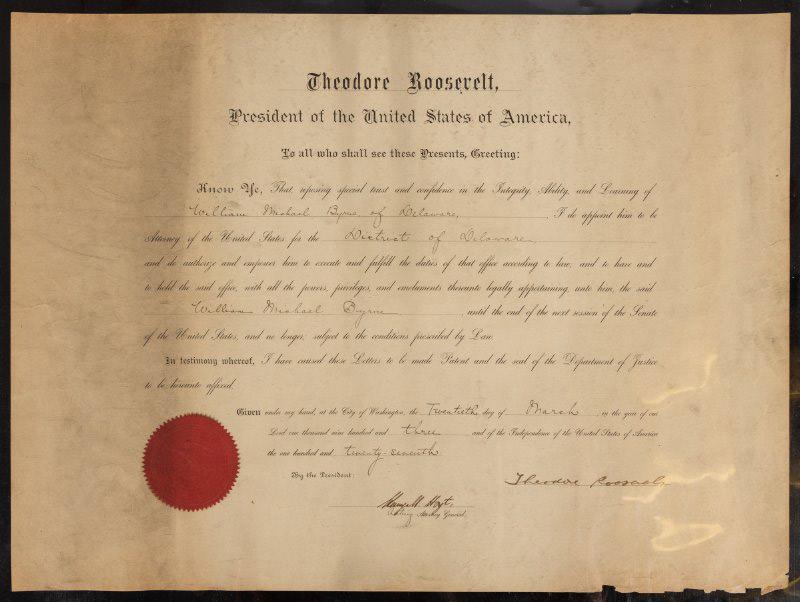 Theodore Roosevelt,
President of the United States of America,
To all who shall see these Presents, Greeting:
Know Ye, That, reposing special trust and confidence in the Integrity, Ability, and Learning of
William Michael Byrne, of Delaware, I do appoint him to be
Attorney of the United States for the District of Delaware
and do authorize and empower him to execute and fulfill the duties of that office according to law, and to have and
to hold the said office, with all the powers, privileges, and emoluments thereunto legally appertaining, unto him, the said
William Michael Byrne until the end of the next session of the Senate
of the United States, and no longer, subject to the conditions prescribed by Law.
In testimony whereof, I have caused these Letters to be made Patent and the seal of the Department of Justice
to be hereunto affixed.
Given under my hand, at the City of Washington, the Twentieth day of March, in the year of our
Lord one thousand nine hundred and three and of the Independence of the United States of America
the one hundred and twenty-seventh
By the President:
Theodore Roosevelt
Hoyt
Acting Attorney General.